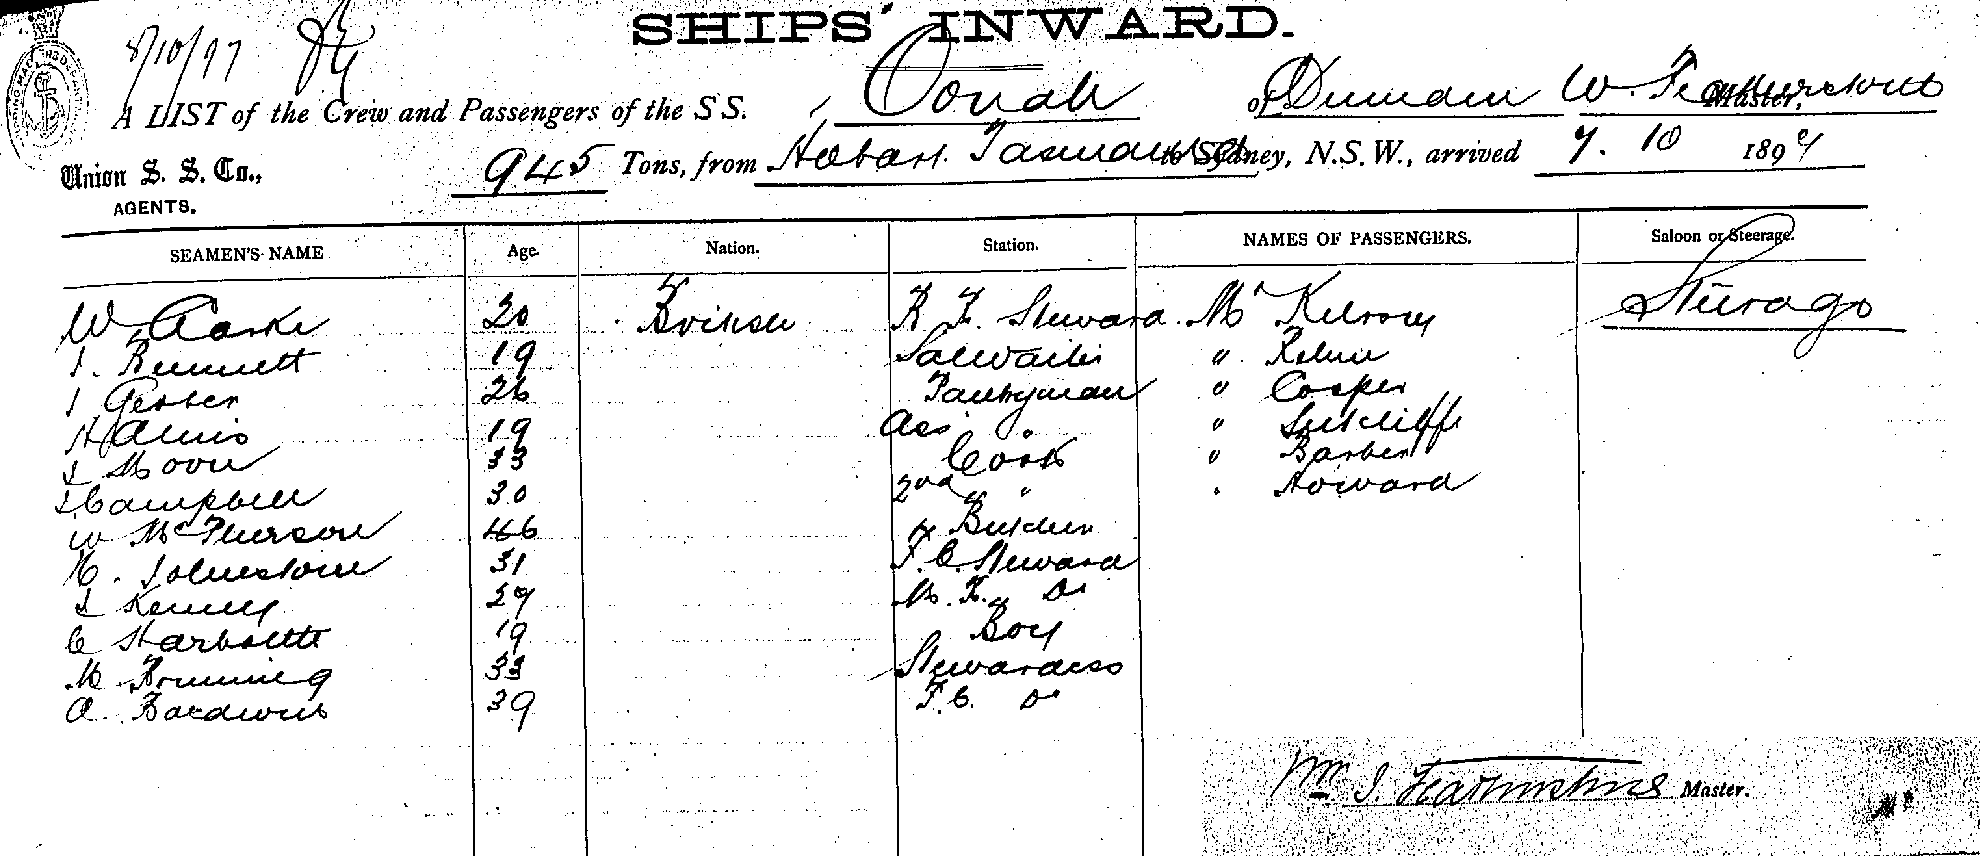 SHIPS' INWARD.
8/10/97
A LIST of the Crew and Passengers of the S.S. Oonah of Dunedin W. Featherstone Master,
Union S. S. Co., AGENTS.
945 Tons, from Hobart Tasmania to Sydney, N.S.W., arrived 7. 10 1897
SEAMEN'S NAME Age. Nation. Station. NAMES OF PASSENGERS. Saloon or Steerage.
W Clarke 20 British R F. Steward. Mr Steerage
Bennett 19 "
26 Pantryman " Cooper
H 19 Ass " " Sutcliffe
Moore 33 Cook " Barber
Campbell 30 2nd " " Howard
W McPherson 46 " Butcher
H. Johnstone 31 F. C. Steward
Kenney 29 Do
C Harbottle 19 Boy
M 33 Stewardess
A. Baldwin 39 F. C. Do
Wm J. Featherstone Master.